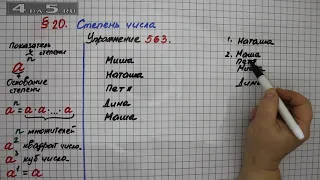 4du5.ru
§ 20. Степень числа
Упражнение 563.
Показатель
степени
n
a
Основание
степени
aⁿ = a·a·...·a
n множителей
a² квадрат числа
a³ куб числа
a¹ = a
Миша
Наташа
Петя
Дина
Маша
1. Наташа
2. Маша
Петя
Миша
Дина